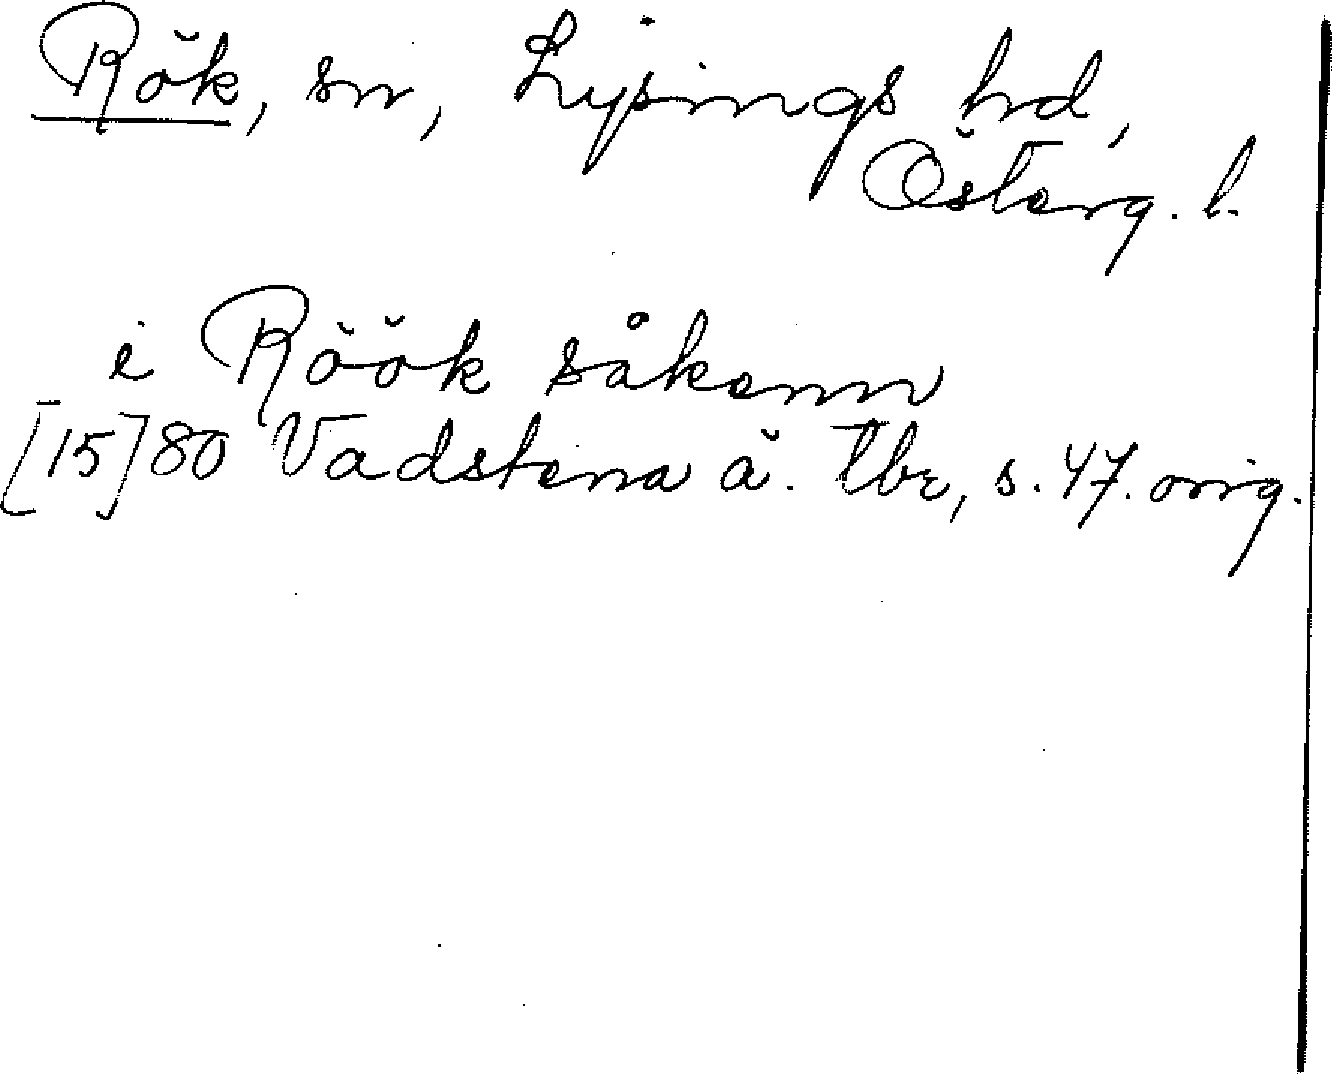 Rök, sn, Lysings hd,
Österg. l.
i Röök såkenn
[15]80 Vadstena ä. tbr, s. 47. orig.